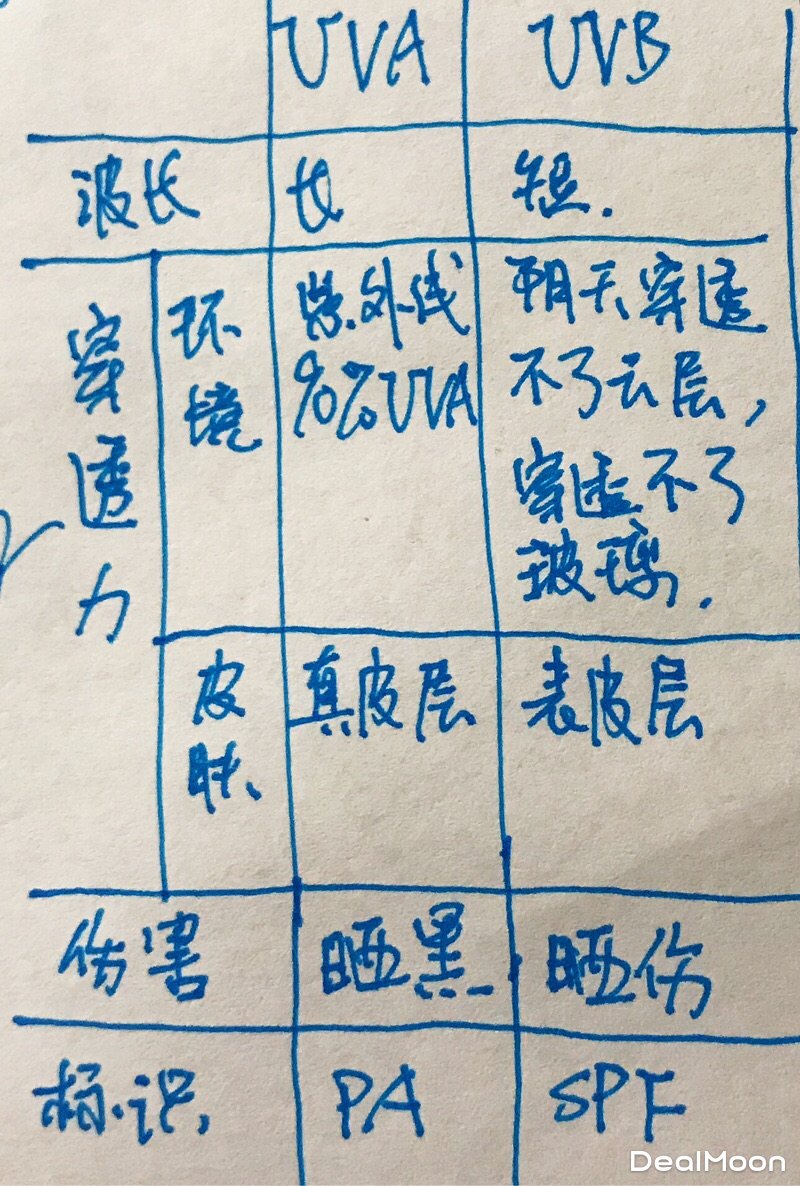 UVA UVB
波长 长 短.
穿透力 环境 紫外线 阴天穿透
90%UVA 不了云层,
穿透不了
玻璃.
皮肤、 真皮层 表皮层
伤害 晒黑 晒伤
标识, PA SPF
DealMoon